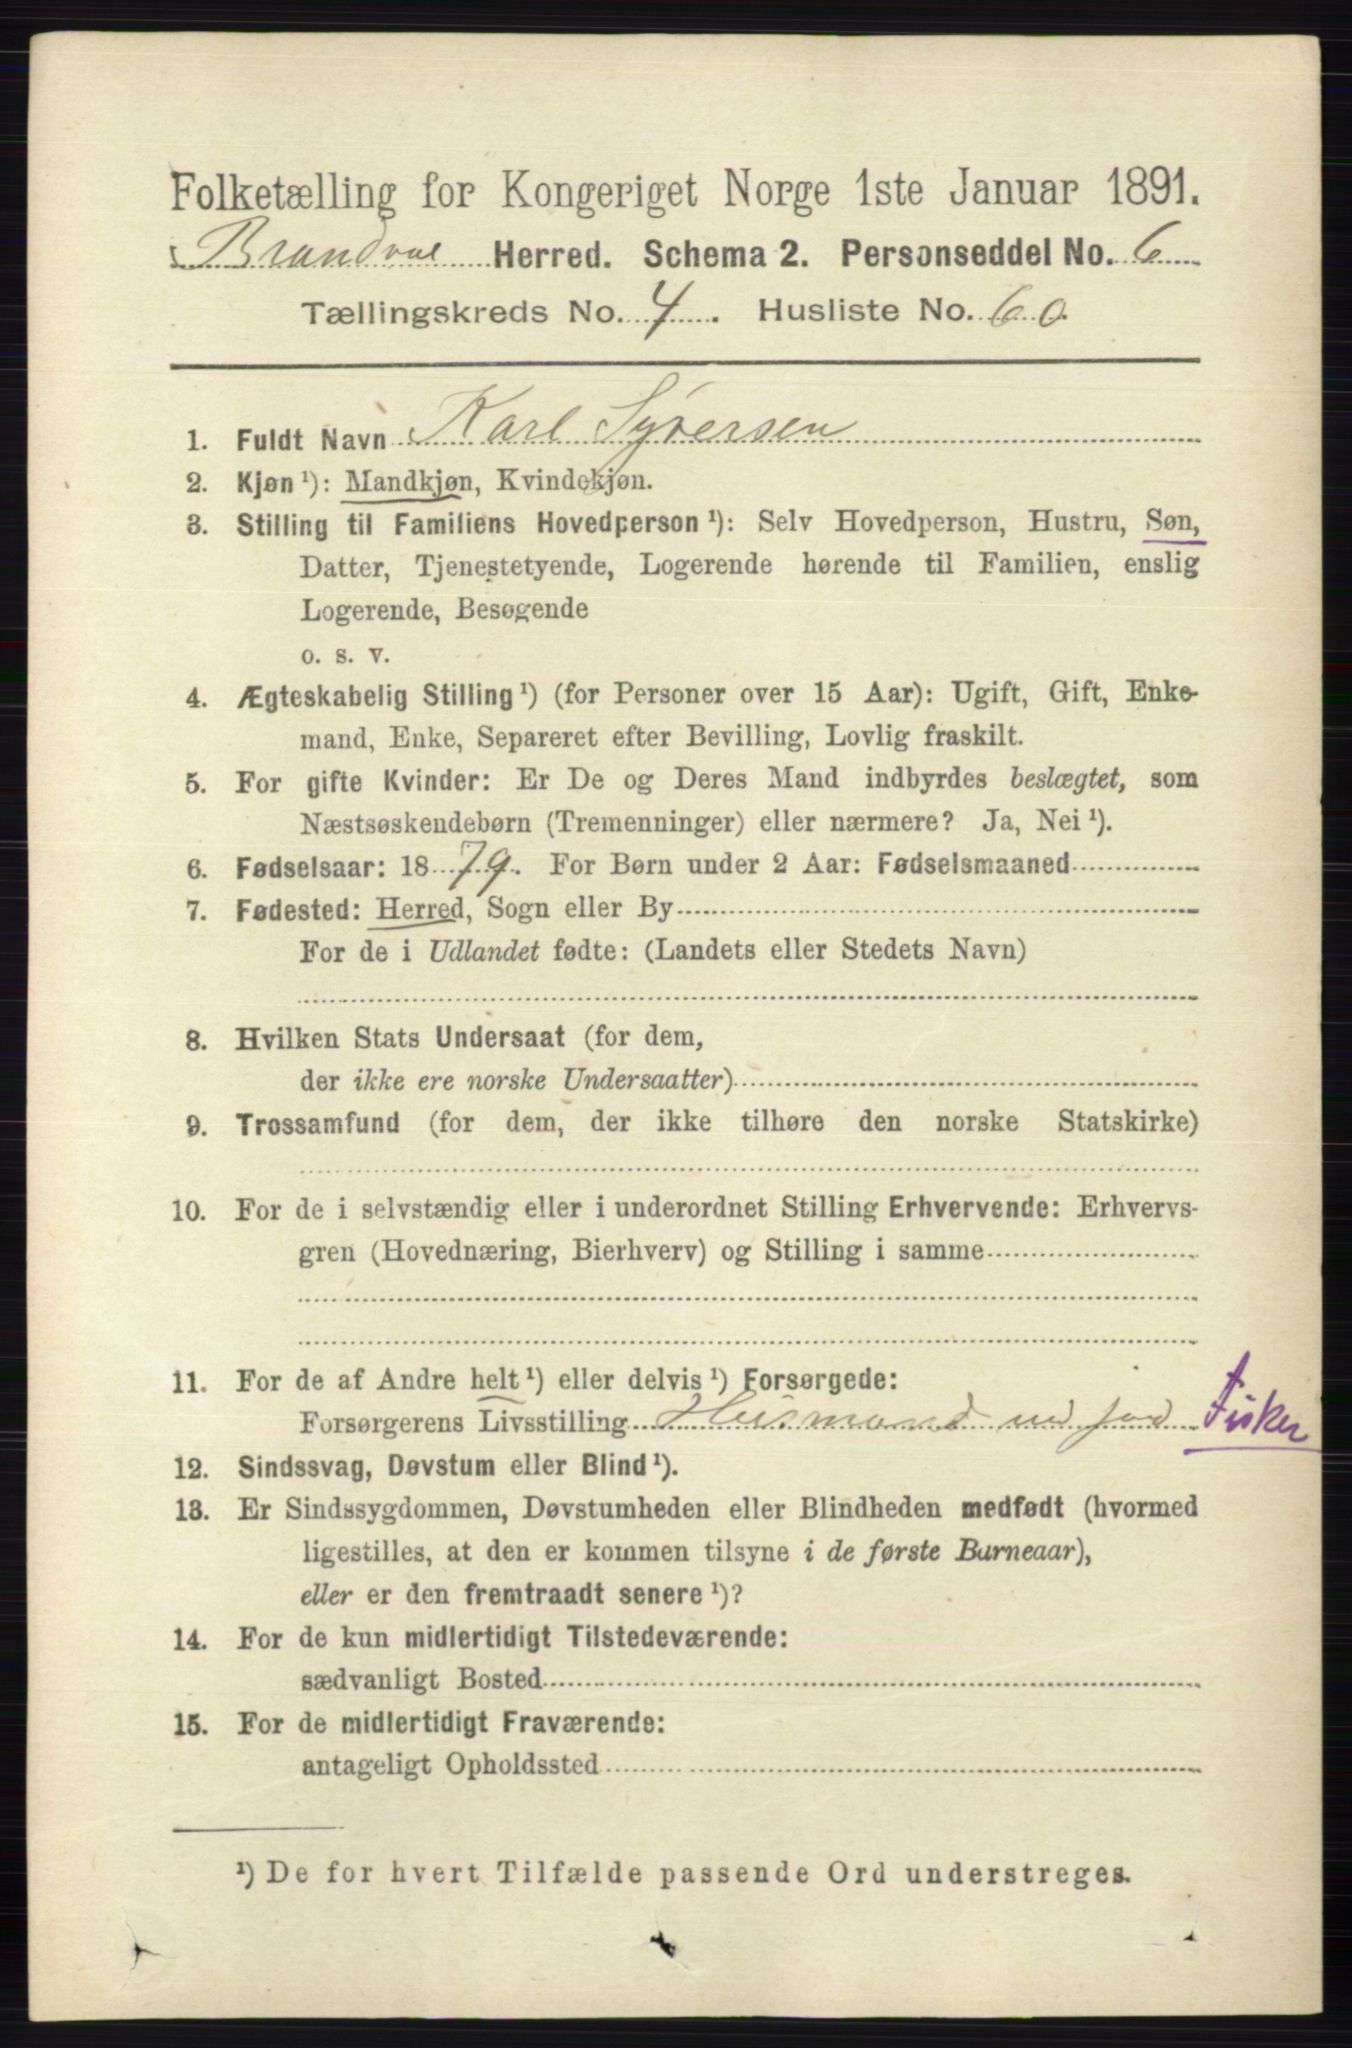 Folketælling for Kongeriget Norge 1ste Januar 1891.
Brandval Herred. Schema 2. Personseddel No. 6
Tællingskreds No. 4. Husliste No. 60
1. Fuldt Navn Karl Syversen
2. Kjøn ¹): Mandkjøn, Kvindekjøn.
3. Stilling til Familiens Hovedperson ¹): Selv Hovedperson, Hustru, Søn,
Datter, Tjenestetyende, Logerende hørende til Familien, enslig
Logerende, Besøgende
o. s. v.
4. Ægteskabelig Stilling ¹) (for Personer over 15 Aar): Ugift, Gift, Enke-
mand, Enke, Separeret efter Bevilling, Lovlig fraskilt.
5. For gifte Kvinder: Er De og Deres Mand indbyrdes beslægtet, som
Næstsøskendebørn (Tremenninger) eller nærmere? Ja, Nei ¹).
6. Fødselsaar: 1879. For Børn under 2 Aar: Fødselsmaaned
7. Fødested: Herred, Sogn eller By
For de i Udlandet fødte: (Landets eller Stedets Navn)
8. Hvilken Stats Undersaat (for dem,
der ikke ere norske Undersaatter)
9. Trossamfund (for dem, der ikke tilhøre den norske Statskirke)
10. For de i selvstændig eller i underordnet Stilling Erhvervende: Erhvervs-
gren (Hovednæring, Bierhverv) og Stilling i samme
11. For de af Andre helt ¹) eller delvis ¹) Forsørgede:
Forsørgerens Livsstilling Husmand med jord Fisker
12. Sindssvag, Døvstum eller Blind ¹).
13. Er Sindssygdommen, Døvstumheden eller Blindheden medfødt (hvormed
ligestilles, at den er kommen tilsyne i de første Barneaar),
eller er den fremtraadt senere ¹)?
14. For de kun midlertidigt Tilstedeværende:
sædvanligt Bosted
15. For de midlertidigt Fraværende:
antageligt Opholdssted
¹) De for hvert Tilfælde passende Ord understreges.